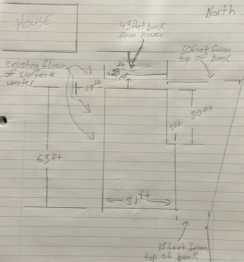 HOUSE
North
43 feet back
from house
50 feet from
top of bank
existing flow
of surface
water
19 ft
63 ft
31 ft
15 feet from
top of bank